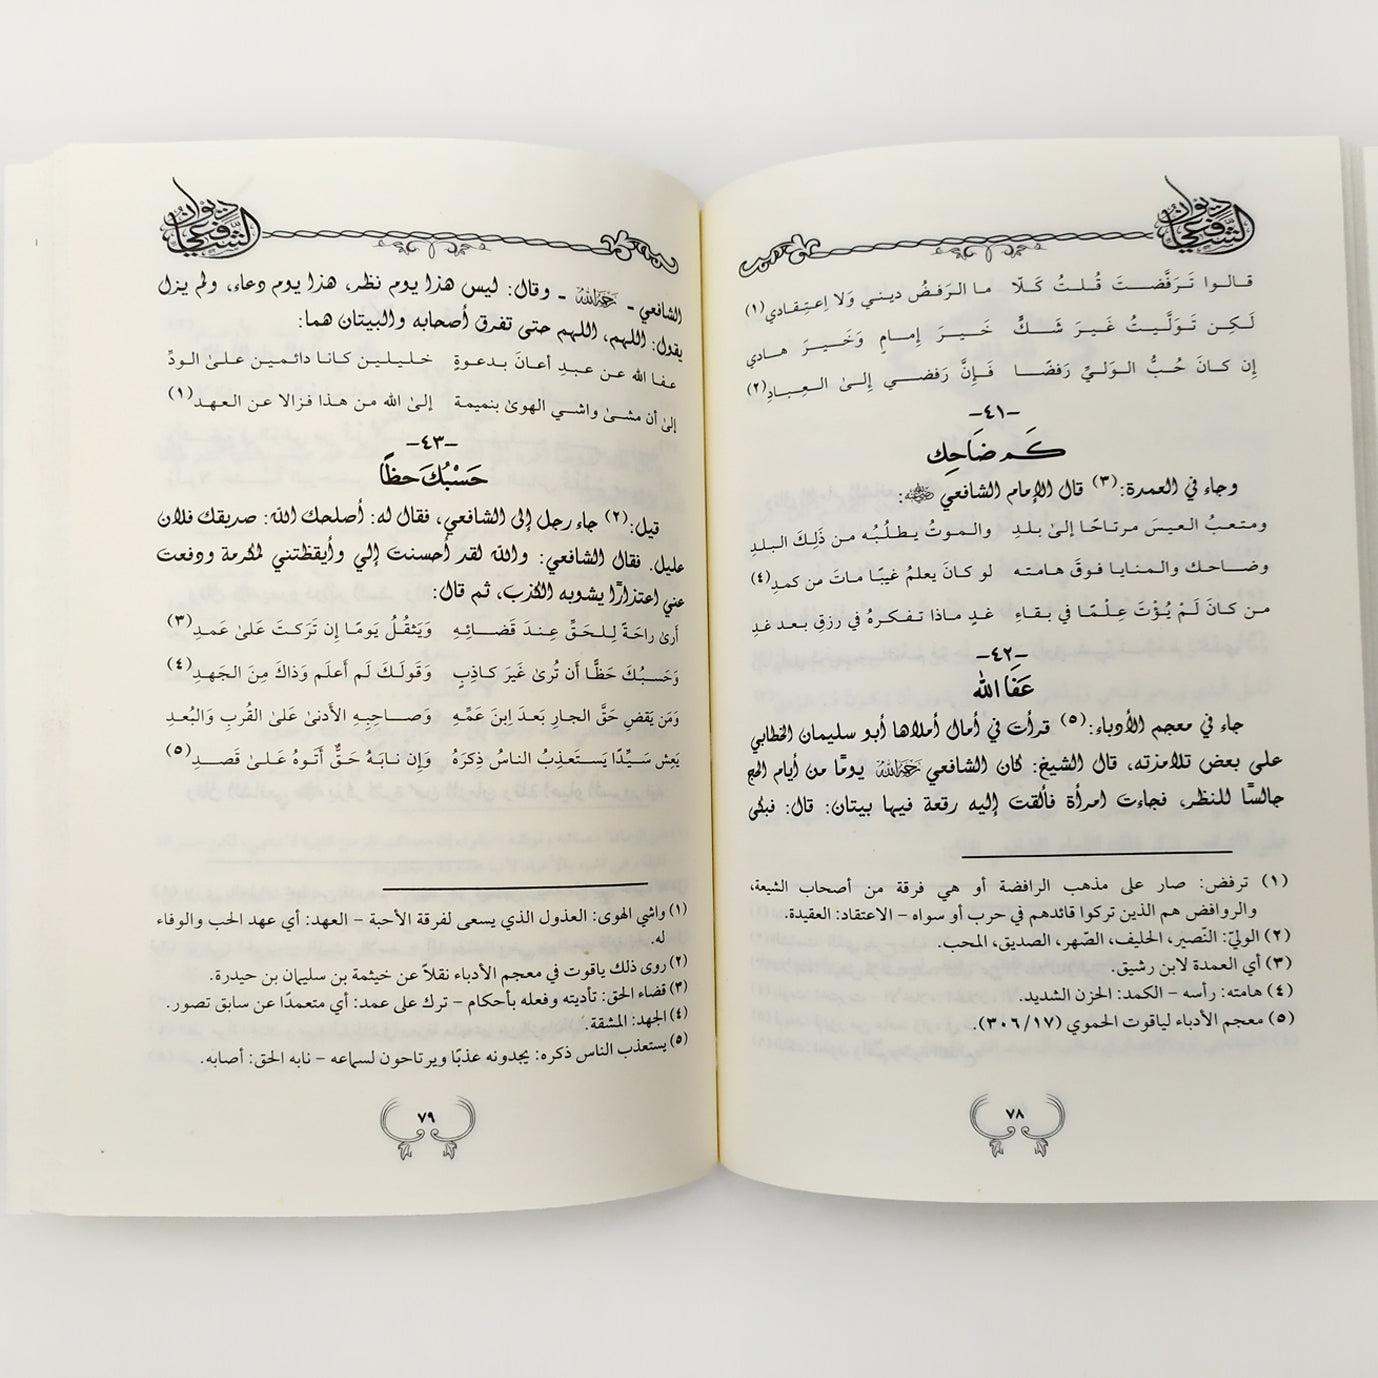 ديوان الشافعي
قالوا تَرَفَّضتَ قُلتُ كَلّا ما الرَفضُ ديني وَلا اِعتِقادي(١)
لَكِن تَوَلَّيتُ غَيرَ شَكٍّ خَيرَ إِمامٍ وَخَيرَ هادي
إِن كانَ حُبُّ الوَليِّ رَفضًا فَإِنَّ رَفضي إِلىٰ العِبادِ(٢)
-٤١-
كَم ضَاحِك
وجاء في العمدة:(٣) قال الإمام الشافعي ﵁:
ومتعبُ العيسَ مرتاحًا إلىٰ بلدِ والموتُ يطلُبُه من ذَلِكَ البلدِ
وضاحك والمنايا فوقَ هامته لو كانَ يعلمُ غيبًا ماتَ من كمدِ(٤)
من كانَ لَمْ يُؤْتَ عِلْمًا في بقاءِ غدٍ ماذا تفكرهُ في رزقِ بعد غدِ
-٤٢-
عَفَا الله
جاء في معجم الأدباء:(٥) قرأت في أمال أملاها أبو سليمان الخطابي
على بعض تلامذته، قال الشيخ: كان الشافعي رَحِمَهُ اللَّهُ يومًا من أيام الحج
جالسًا للنظر، فجاءت امرأة فألقت إليه رقعة فيها بيتان: قال: فبكى
(١) ترفض: صار على مذهب الرافضة أو هي فرقة من أصحاب الشيعة،
والروافض هم الذين تركوا قائدهم في حرب أو سواه – الاعتقاد: العقيدة.
(٢) الوليّ: النّصير، الحليف، الصّهر، الصديق، المحب.
(٣) أي العمدة لابن رشيق.
(٤) هامته: رأسه – الكمد: الحزن الشديد.
(٥) معجم الأدباء لياقوت الحموي (٣٠٦/١٧).
٧٨
ديوان الشافعي
الشافعي - رَحِمَهُ اللَّهُ - وقال: ليس هذا يوم نظر، هذا يوم دعاء، ولم يزل
يقول: اللهم، اللهم حتى تفرق أصحابه والبيتان هما:
عفا الله عن عبدِ أعانَ بدعوةٍ خليلين كانا دائمين علىٰ الودِّ
إلىٰ أن مشىٰ واشي الهوىٰ بنميمة إلىٰ الله من هذا فزالا عن العهد(١)
-٤٣-
حَسْبُكَ حظاً
قيل:(٢) جاء رجل إلى الشافعي، فقال له: أصلحك الله: صديقك فلان
عليل. فقال الشافعي: والله لقد أحسنت إلي وأيقظتني لمكرمة ودفعت
عني اعتذارًا يشوبه الكذب، ثم قال:
أَرىٰ راحَةً لِلحَقِّ عِندَ قَضائِهِ وَيَثقُلُ يَومًا إِن تَرَكتَ عَلىٰ عَمدِ(٣)
وَحَسبُكَ حَظًّا أَن تُرىٰ غَيرَ كاذِبٍ وَقَولَكَ لَم أَعلَم وَذاكَ مِنَ الجَهدِ(٤)
وَمَن يَقضِ حَقَّ الجارِ بَعدَ اِبنَ عَمِّهِ وَصاحِبِهِ الأَدنىٰ عَلىٰ القُربِ وَالبُعدِ
يَعِش سَيِّدًا يَستَعذِبُ الناسُ ذِكرَهُ وَإِن نابَهُ حَقٌّ أَتَوهُ عَلىٰ قَصدِ(٥)
(١) واشي الهوى: العذول الذي يسعى لفرقة الأحبة – العهد: أي عهد الحب والوفاء
له.
(٢) روى ذلك ياقوت في معجم الأدباء نقلاً عن خيثمة بن سليمان بن حيدرة.
(٣) قضاء الحق: تأديته وفعله بأحكام – ترك على عمد: أي متعمدًا عن سابق تصور.
(٤) الجهد: المشقة.
(٥) يستعذب الناس ذكره: يجدونه عذبًا ويرتاحون لسماعه – نابه الحق: أصابه.
٧٩